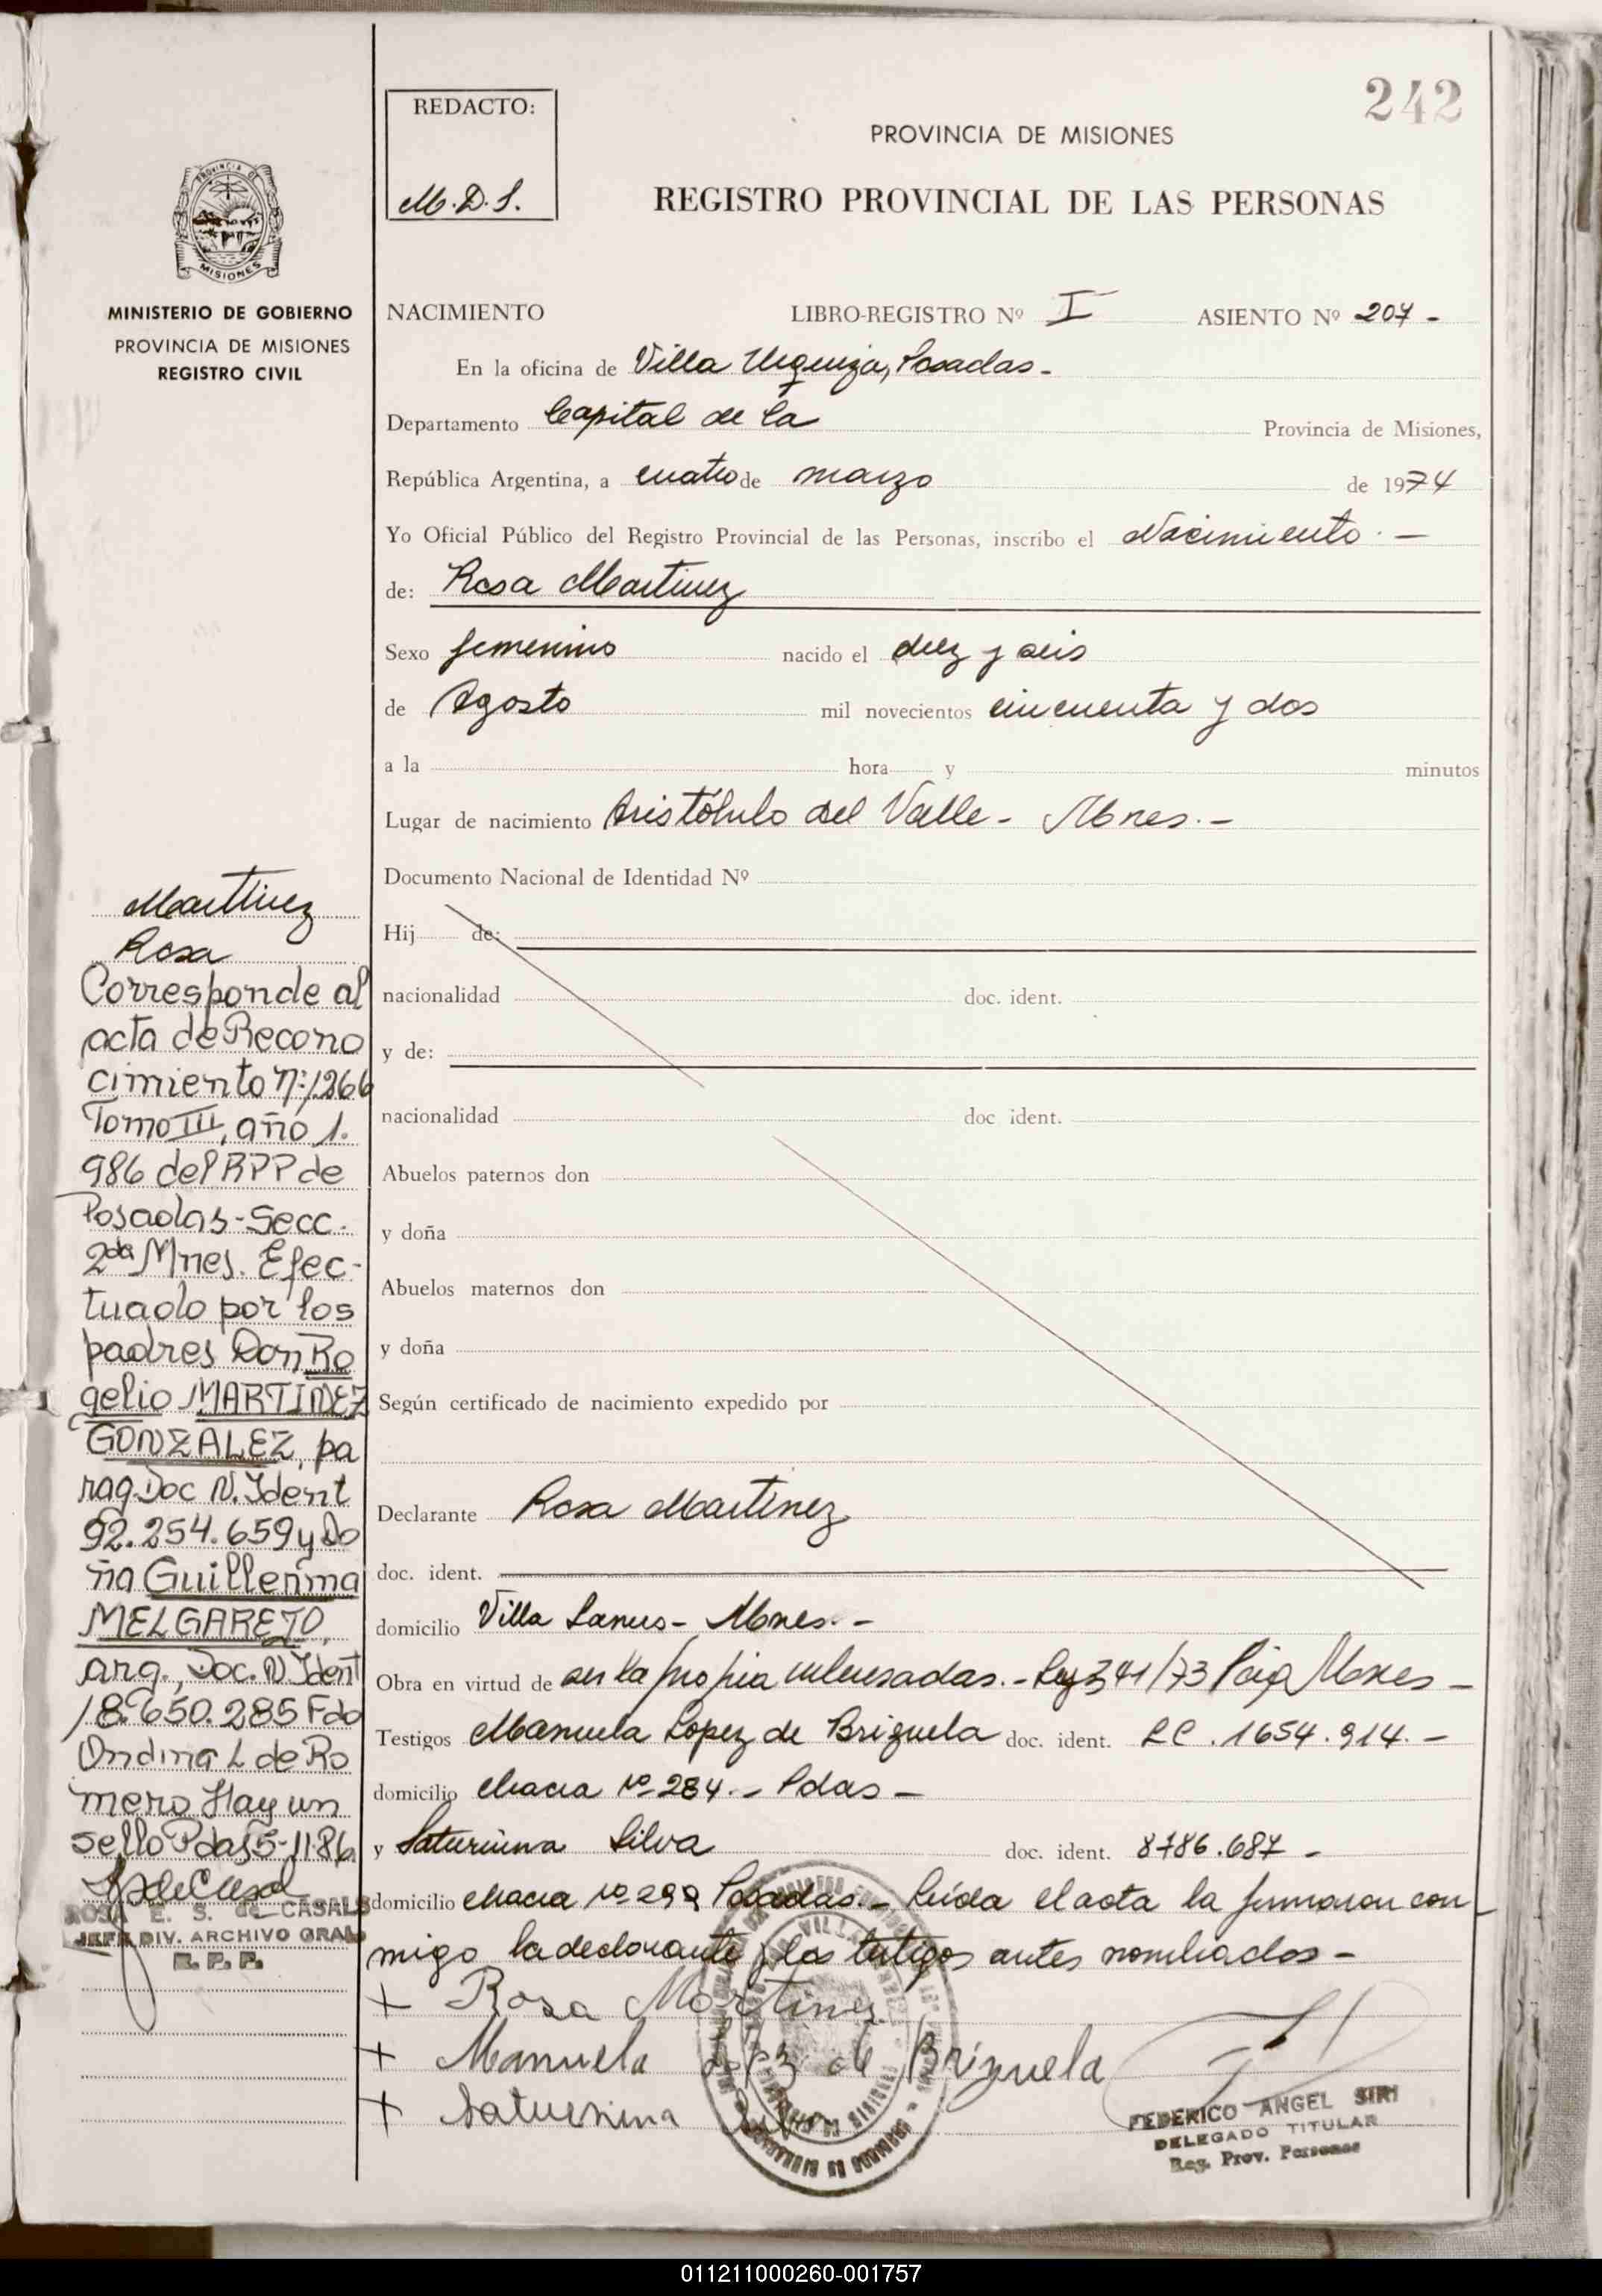 242
REDACTO:
M.D.S.
PROVINCIA DE MISIONES
REGISTRO PROVINCIAL DE LAS PERSONAS
PROVINCIA DE
MISIONES
MINISTERIO DE GOBIERNO
PROVINCIA DE MISIONES
REGISTRO CIVIL
NACIMIENTO LIBRO-REGISTRO Nº I ASIENTO Nº 207 -
En la oficina de Villa Urquiza, Posadas -
Departamento Capital de la Provincia de Misiones,
República Argentina, a cuatro de marzo de 1974
Yo Oficial Público del Registro Provincial de las Personas, inscribo el Nacimiento. -
de: Rosa Martinez
Sexo femenino nacido el diez y seis
de Agosto mil novecientos cincuenta y dos
a la hora y minutos
Lugar de nacimiento Aristóbulo del Valle - Mnes. -
Documento Nacional de Identidad Nº
Hij de:
nacionalidad doc. ident.
y de:
nacionalidad doc ident.
Abuelos paternos don
y doña
Abuelos maternos don
y doña
Según certificado de nacimiento expedido por
Declarante Rosa Martinez
doc. ident.
domicilio Villa Lanus - Mnes. -
Obra en virtud de ser la propia - Ley 341/73 Mnes -
Testigos Manuela Lopez de Brizuela doc. ident. LC. 1654.914. -
domicilio chacra Nº 284. - Pdas -
y Saturnina Silva doc. ident. 8786.687 -
domicilio chacra Nº 299 Posadas. - Leída el acta la firmaron con
migo la declarante y los testigos antes nombrados -
+ Rosa Martinez
+ Manuela Lopez de Brizuela
+ Saturnina Silva
FEDERICO ANGEL SIRI
DELEGADO TITULAR
Reg. Prov. Personas
Martinez
Rosa
Corresponde al
acta de Recono
cimiento Nº: 1266
Tomo III, año 1.
986 del RPP de
Posadas - Secc.
2da Mnes. Efec-
tuado por los
padres Don Ro
gelio MARTINEZ
GONZALEZ, pa
rag. Doc N. Ident
92.254.659 y Do
ña Guillerma
MELGAREJO,
arg., Doc. N. Ident
18.650.285 Fdo
Ondina L de Ro
mero Hay un
sello Pdas 5-11-86
ROSA E. S. de CASALS
JEFE DIV. ARCHIVO GRAL
R. P. P.
011211000260-001757